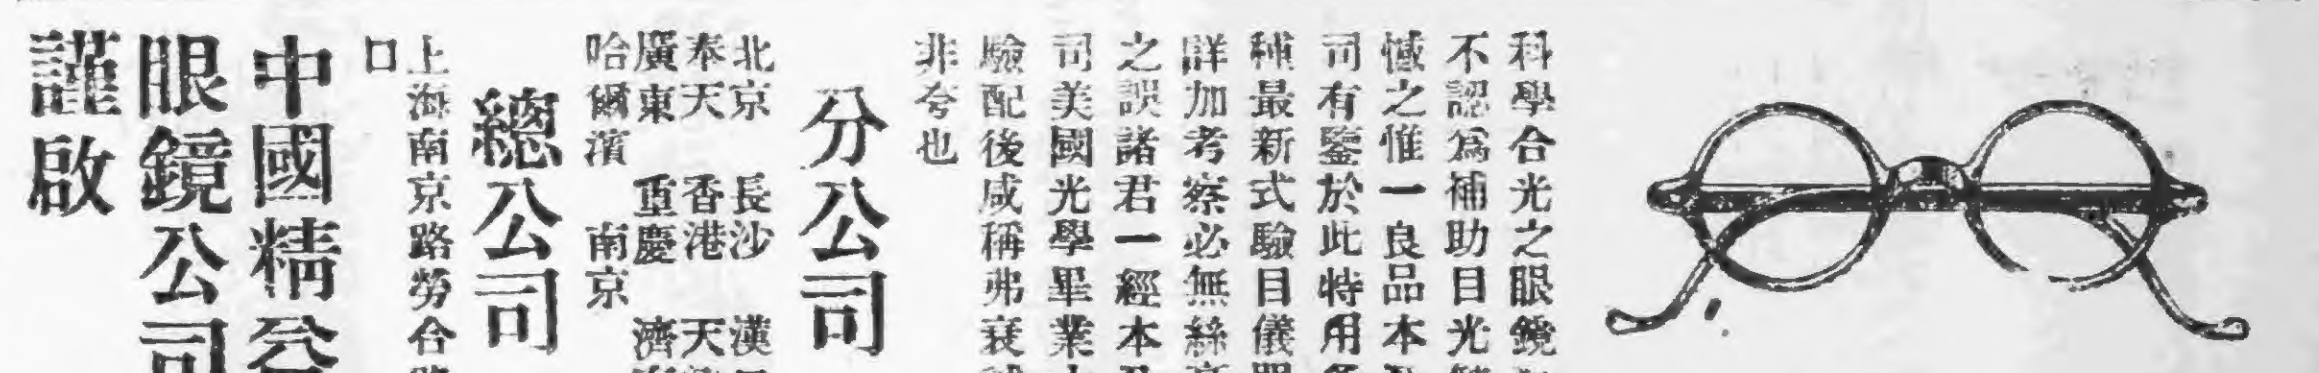 科學合光之眼鏡
不認爲補助目光
憾之惟一良品本
司有鑒於此特用
種最新式驗目儀
詳加考察必無絲
之誤諸君一經本
司美國光學畢業
驗配後咸稱弗衰
非夸也
分公司
北京 長沙 漢
奉天 香港 天
廣東 重慶 濟
哈爾濱 南京
總公司
上海南京路勞合
口
中國精益
眼鏡公司
謹啟